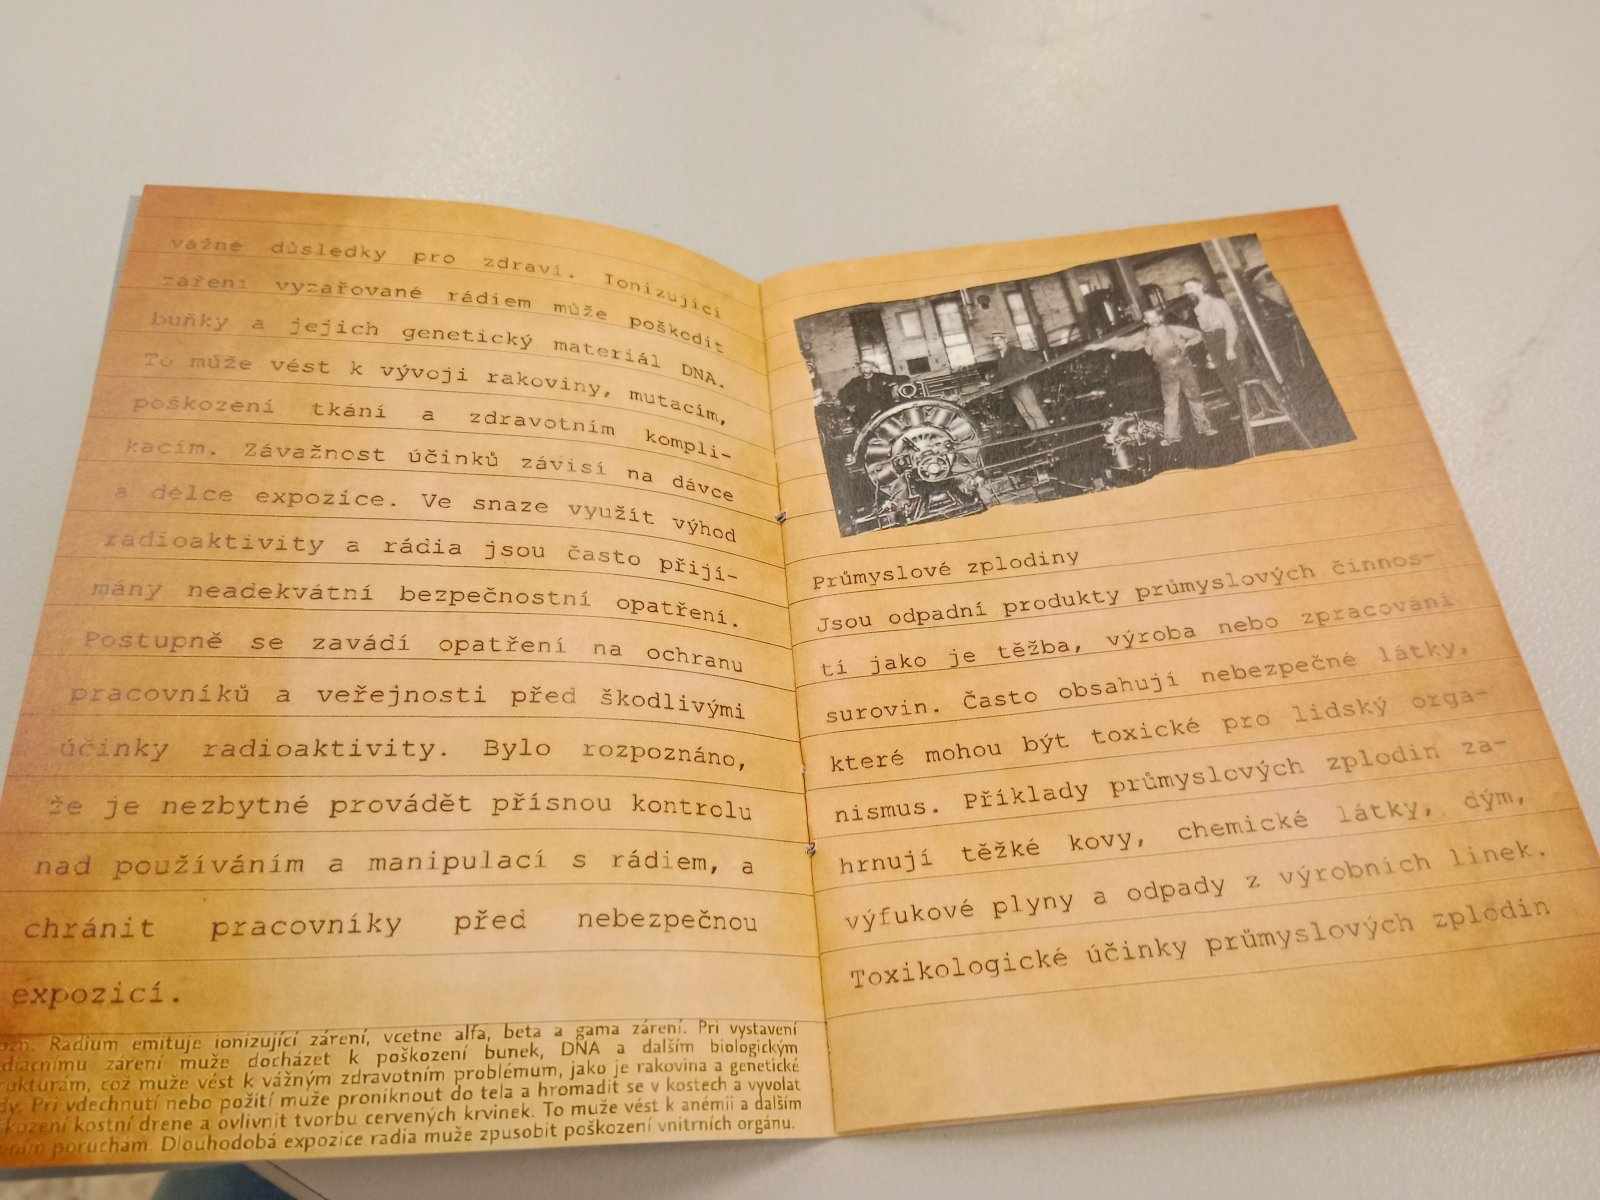 važné důsledky pro zdraví. Ionizující
záření vyzařované rádiem může poškodit
buňky a jejich genetický materiál DNA.
To může vést k vývoji rakoviny, mutacím,
poškození tkání a zdravotním kompli-
kacím. Závažnost účinků závisí na dávce
a délce expozice. Ve snaze využít výhod
radioaktivity a rádia jsou často přijí-
mány neadekvátní bezpečnostní opatření.
Postupně se zavádí opatření na ochranu
pracovníků a veřejnosti před škodlivými
účinky radioaktivity. Bylo rozpoznáno,
že je nezbytné provádět přísnou kontrolu
nad používáním a manipulací s rádiem, a
chránit pracovníky před nebezpečnou
expozicí.
Radium emituje ionizující zárení, vcetne alfa, beta a gama zárení. Pri vystavení
zárení muže docházet k poškození bunek, DNA a dalším biologickým
což muže vést k vážným zdravotním problémum, jako je rakovina a genetické
Pri vdechnutí nebo požití muže proniknout do tela a hromadit se v kostech a vyvolat
kostní drene a ovlivnit tvorbu cervených krvinek. To muže vést k anémii a dalším
poruchám. Dlouhodobá expozice radia muže zpusobit poškození vnitrních orgánu.
Průmyslové zplodiny
Jsou odpadní produkty průmyslových činnos-
tí jako je těžba, výroba nebo zpracování
surovin. Často obsahují nebezpečné látky,
které mohou být toxické pro lidský orga-
nismus. Příklady průmyslových zplodin za-
hrnují těžké kovy, chemické látky, dým,
výfukové plyny a odpady z výrobních linek.
Toxikologické účinky průmyslových zplodin